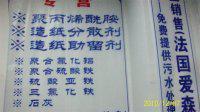 专营
※聚丙烯酰胺
※造纸分散剂
※造纸助留剂
※聚合氯化铝
※聚合硫酸铁
※硫酸亚铁
※三氯化铁
※石灰
销售法国爱森
免费提供污水处
2010